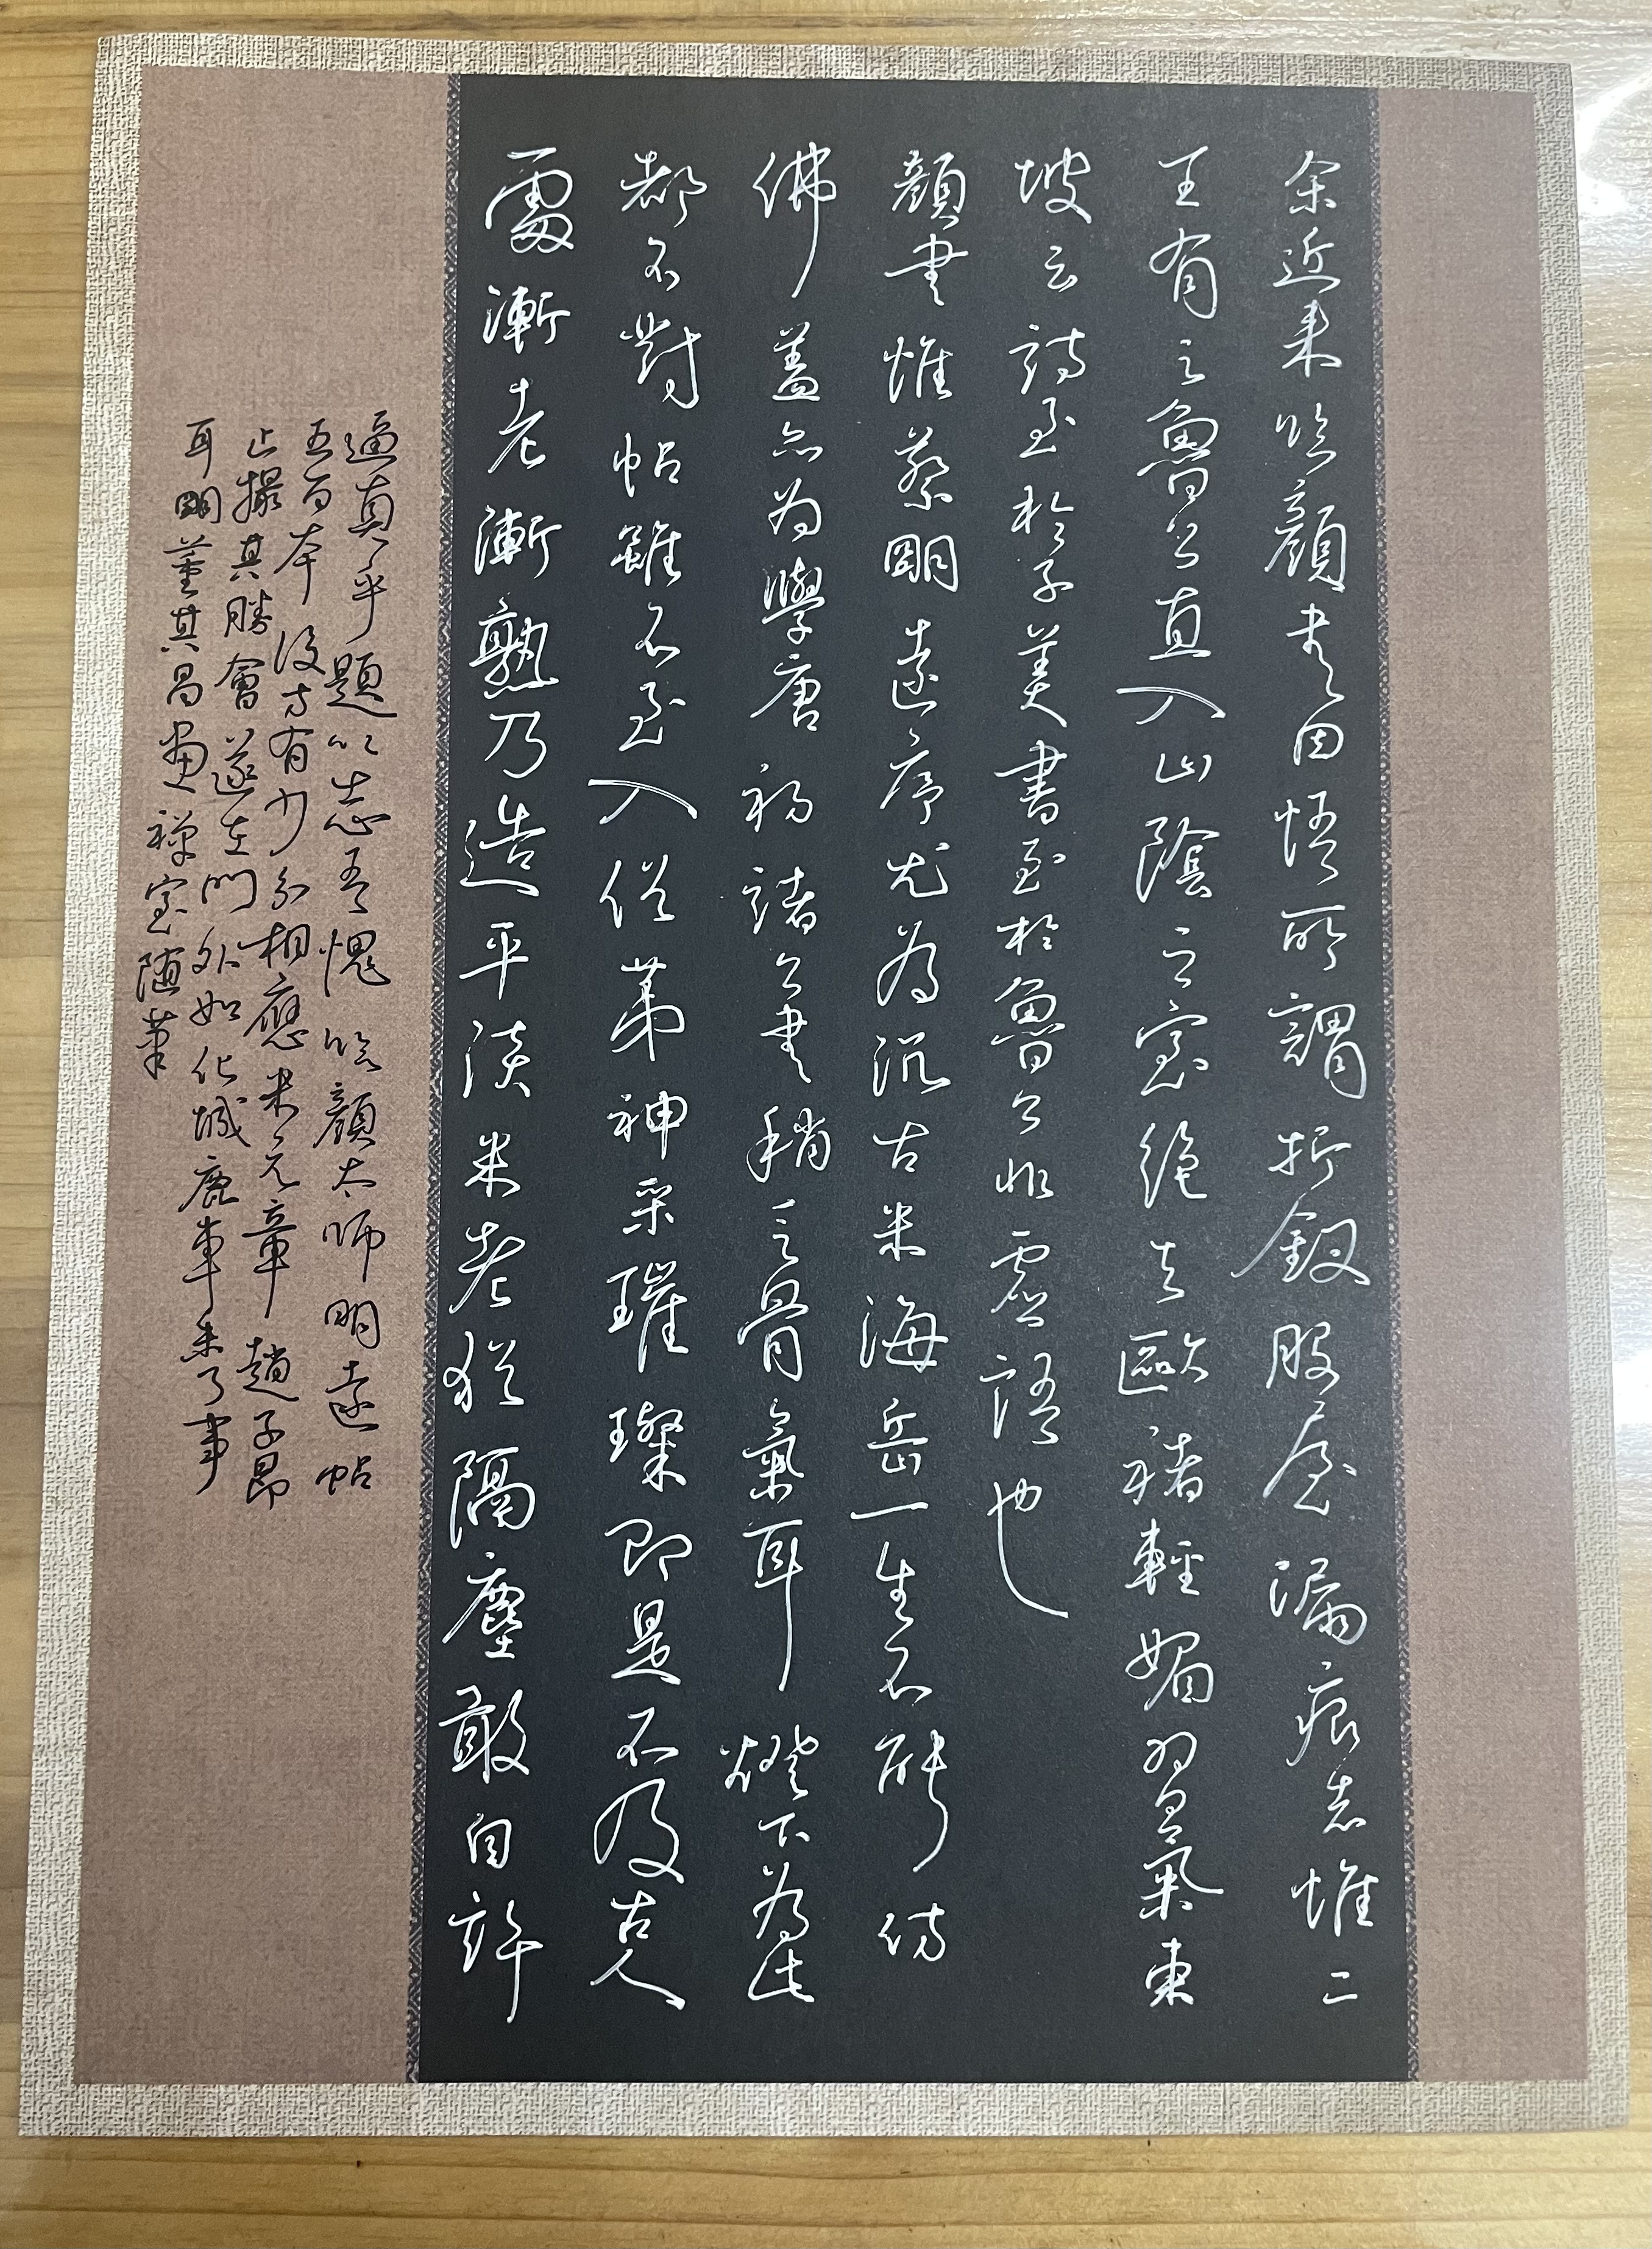 余近来临顔書因悟所謂折釵股屋漏痕者惟二
王有之魯公直入山陰之室絶去歐褚輕媚習氣東
坡云詩至於子美書至於魯公非虛語也
顔書惟蔡明遠序尤為沉古米海岳一生不能仿
佛蓋亦為學唐初諸公書稍乏骨氣耳燈下為此
都不對帖雖不至入俗第神采璀璨即是不及古人
處漸老漸熟乃造平淡米老猶隔塵敢自許
逼真乎題以志吾愧 临顔太师明遠帖
五百本後方有少分相應米元章趙子昂
止撮其勝會遂在門外如化城鹿車未了事
耳 明董其昌畫禪室随筆